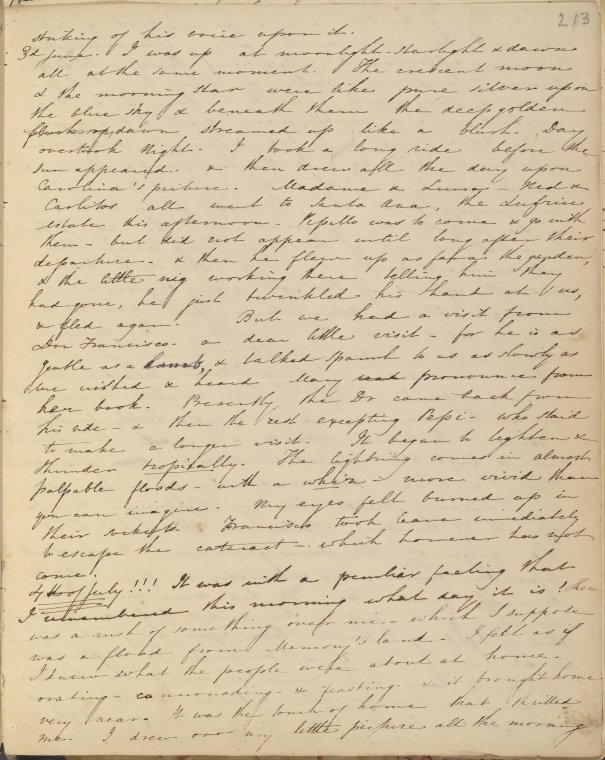 213
striking of his voice upon it.
3d June. I was up at moonlight - starlight & dawn
all at the same moment. The crescent moon
& the morning star were like pure silver upon
the blue sky & beneath them the deep golden
dawn streamed up like a blush. Day
overtook Night. I took a long ride before the
sun appeared. & then drew all the day upon
Carolina's picture. Madame & Luisa - Ned &
Carlitos all went to Santa Ana, the Lufriu
estate this afternoon. Pepillo was to come & go with
them - but did not appear until long after their
departure - & then he flew up as far as the garden,
& the little nig working here telling him they
had gone, he just twinkled his hand at us,
& fled again. But we had a visit from
Don Francisco - a dear little visit - for he is as
gentle as a lamb, & talked Spanish to us as slowly as
we wished & heard Mary read pronounce from
her book. Presently the Dr came back from
his ride - & then the rest excepting Pepi - who staid
to make a longer visit. It began to lighten &
thunder tropically. The lightning comes in almost
palpable floods - with a whiz - more vivid than
you can imagine. My eyes felt burned up in
their sockets. Francisco took leave immediately
to escape the cataract - which however has not
come.
4th of July!!! It was with a peculiar feeling that
I remembered this morning what day it is! There
was a rush of something over me - which I suppose
was a flood from Memory's land - I felt as if
I knew what the people were about at home -
orating - cannonading - & feasting & it brought home
very near. It was the touch of home that thrilled
me. I drew over my little picture all the morning